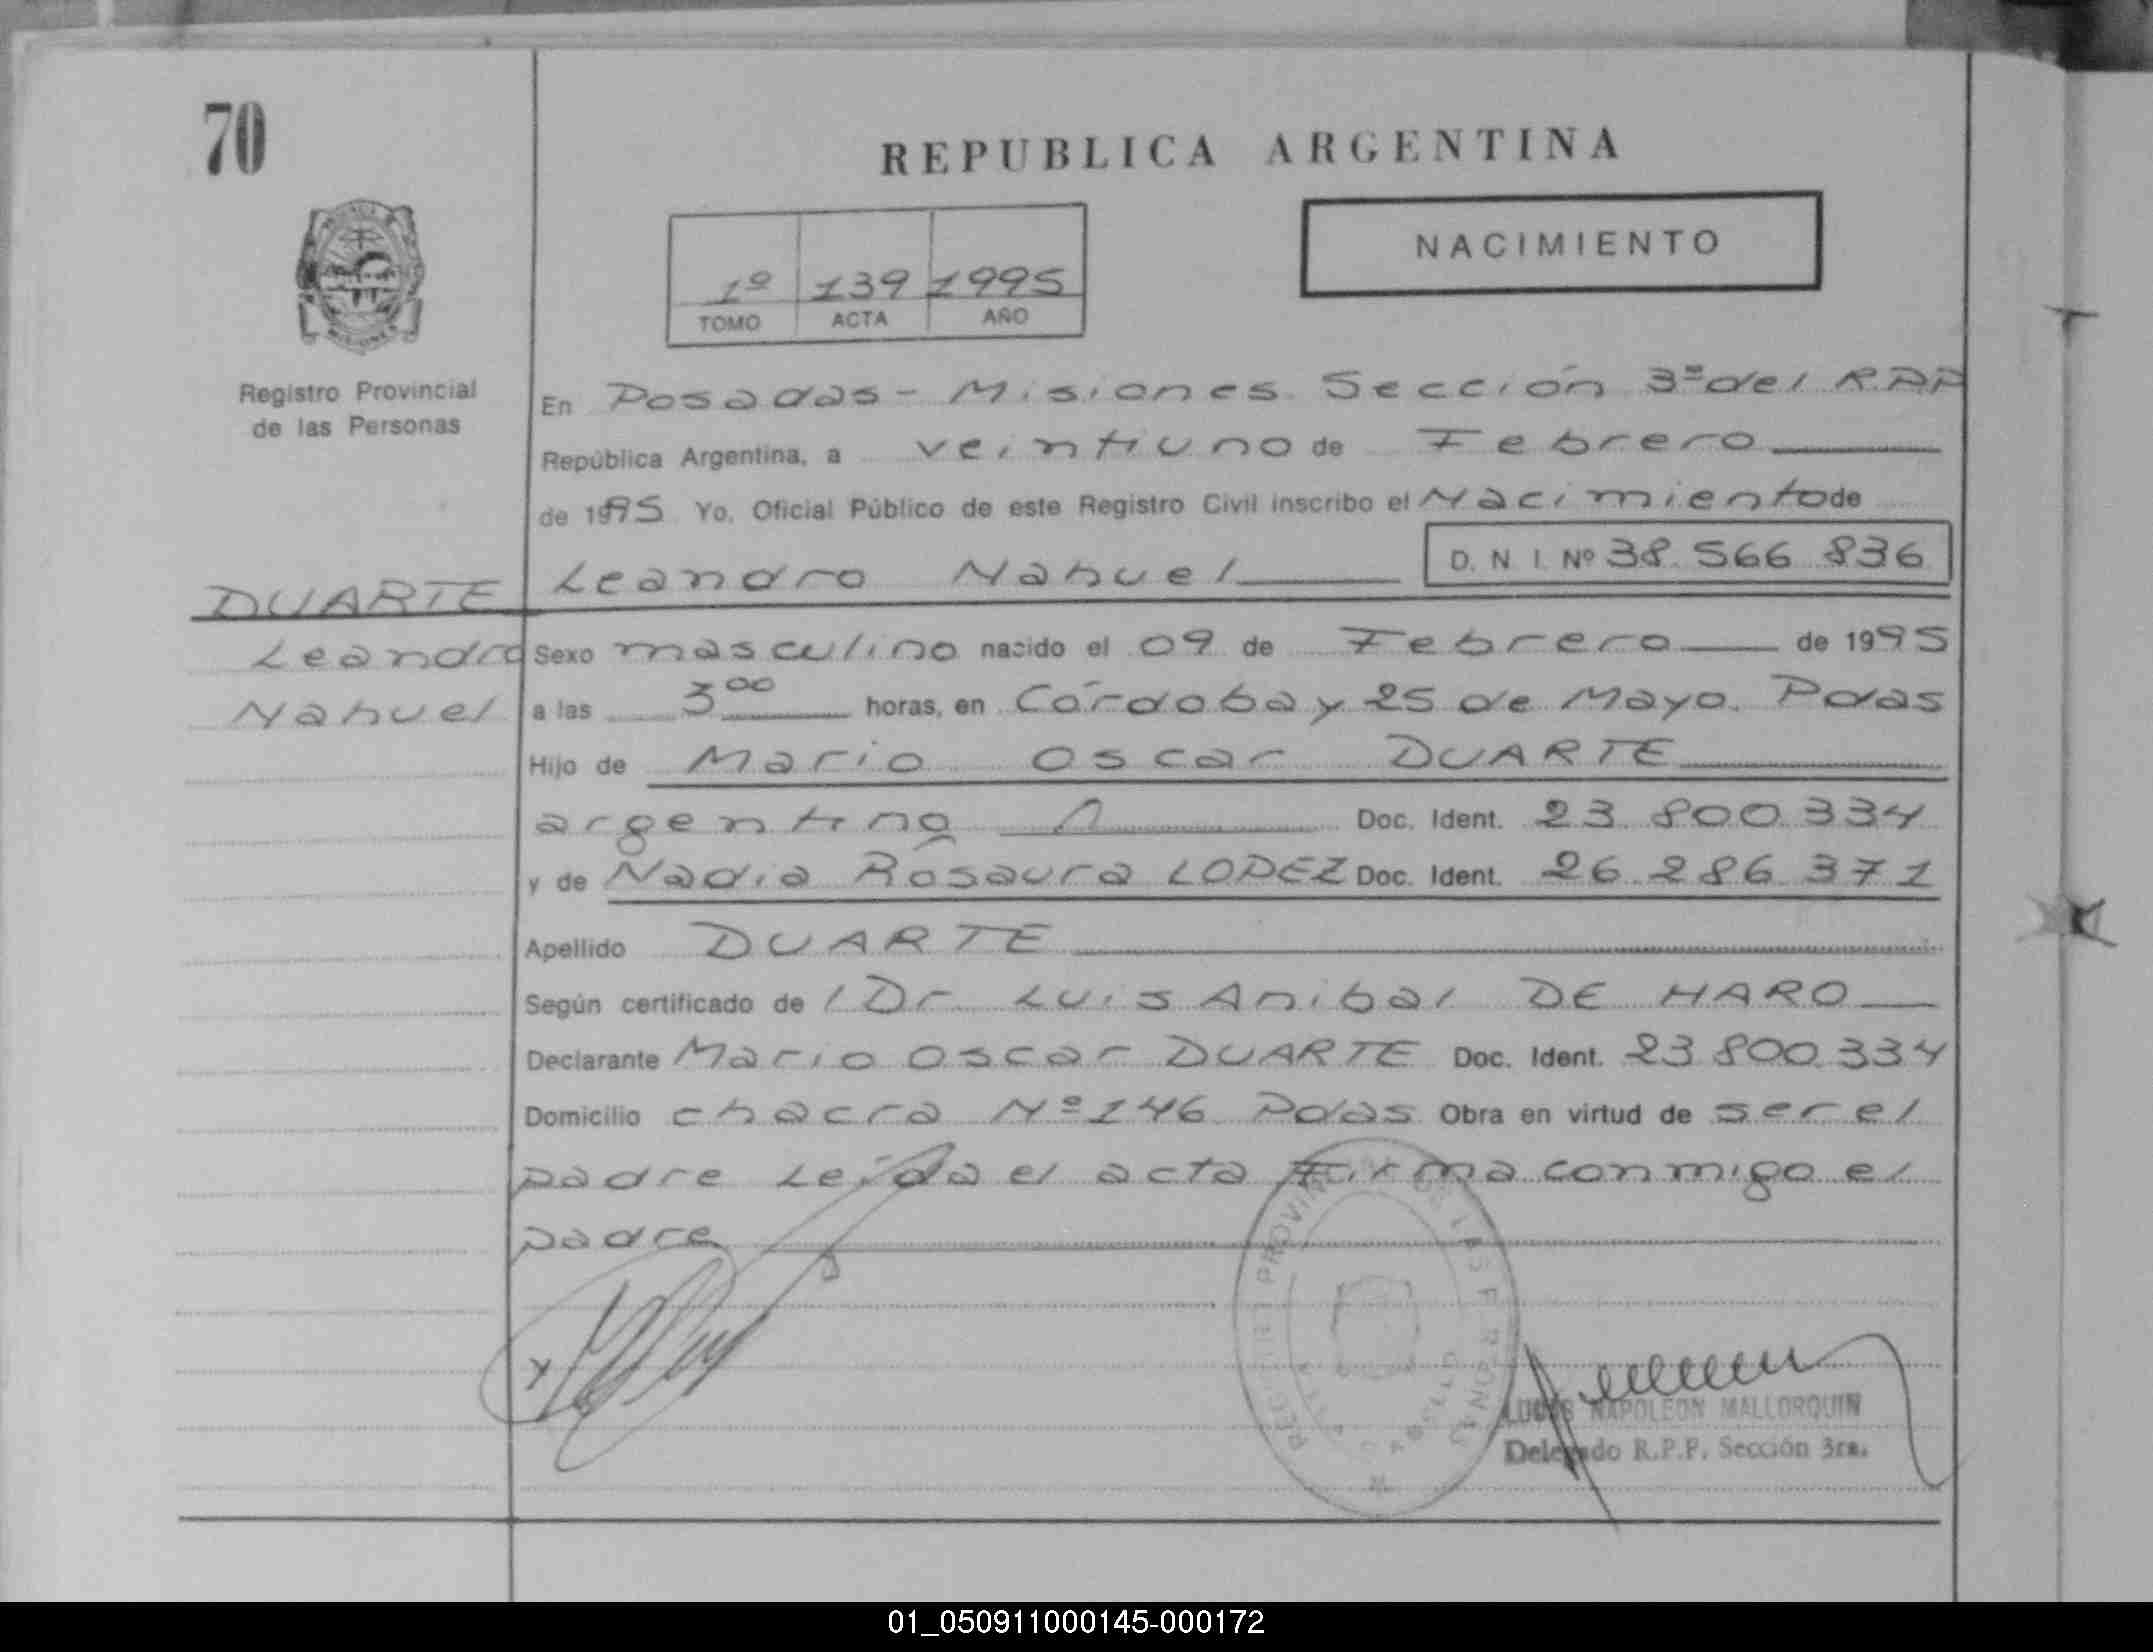 70
REPUBLICA ARGENTINA
NACIMIENTO
1º 139 1995
TOMO ACTA AÑO
Registro Provincial
de las Personas
En Posadas - Misiones. Sección 3ª del R.P.P
República Argentina, a veintiuno de Febrero
de 1995 Yo, Oficial Público de este Registro Civil inscribo el Nacimiento de
Leandro Nahuel D. N. I. Nº 38.566.836
DUARTE
Leandro
Nahuel
Sexo masculino nacido el 09 de Febrero de 1995
a las 3⁰⁰ horas, en Córdoba y 25 de Mayo. Pdas
Hijo de Mario Oscar DUARTE
argentino Doc. Ident. 23.800.334
y de Nadia Rosaura LOPEZ Doc. Ident. 26.286.371
Apellido DUARTE
Según certificado de l Dr Luis Anibal DE HARO
Declarante Mario Oscar DUARTE Doc. Ident. 23.800.334
Domicilio chacra Nº 146 Pdas Obra en virtud de ser el
padre Leída el acta Firma conmigo el
padre
LUCAS NAPOLEON MALLORQUIN
Delegado R.P.P. Sección 3ra.
01_050911000145-000172